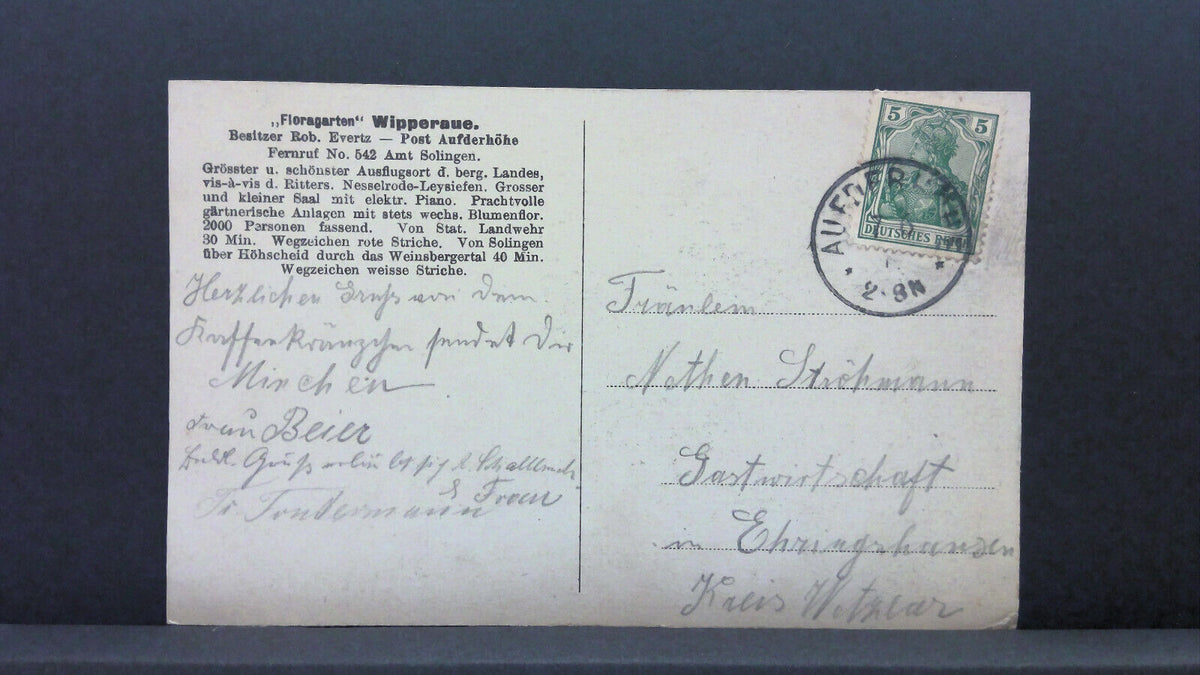 „Floragarten“ Wipperaue.
Besitzer Rob. Evertz — Post Aufderhöhe
Fernruf No. 542 Amt Solingen.
Grösster u. schönster Ausflugsort d. berg. Landes,
vis-à-vis d. Ritters. Nesselrode-Leysiefen. Grosser
und kleiner Saal mit elektr. Piano. Prachtvolle
gärtnerische Anlagen mit stets wechs. Blumenflor.
2000 Personen fassend. Von Stat. Landwehr
30 Min. Wegzeichen rote Striche. Von Solingen
über Höhscheid durch das Weinsbergertal 40 Min.
Wegzeichen weisse Striche.
Herzlichen Gruß von dem
Kaffeekränzchen sendet Dir
Minchen
Frau Beier
Gruß
& Frau
Fr.
5 5
DEUTSCHES REICH
AUFDERHÖHE
2-3N
Fräulein
Nethen Ströhmann
Gastwirtschaft
in Ehringshausen
Kreis Wetzlar